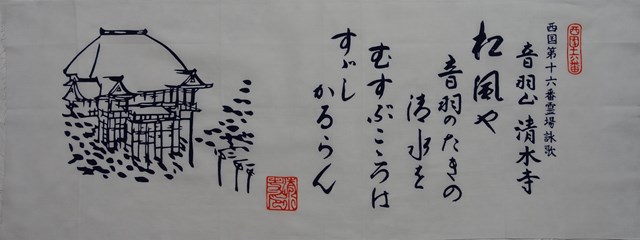 西国十六番
西国第十六番霊場詠歌
音羽山 清水寺
松風や
音羽のたきの
清水を
むすぶこころは
すゞし
かるらん